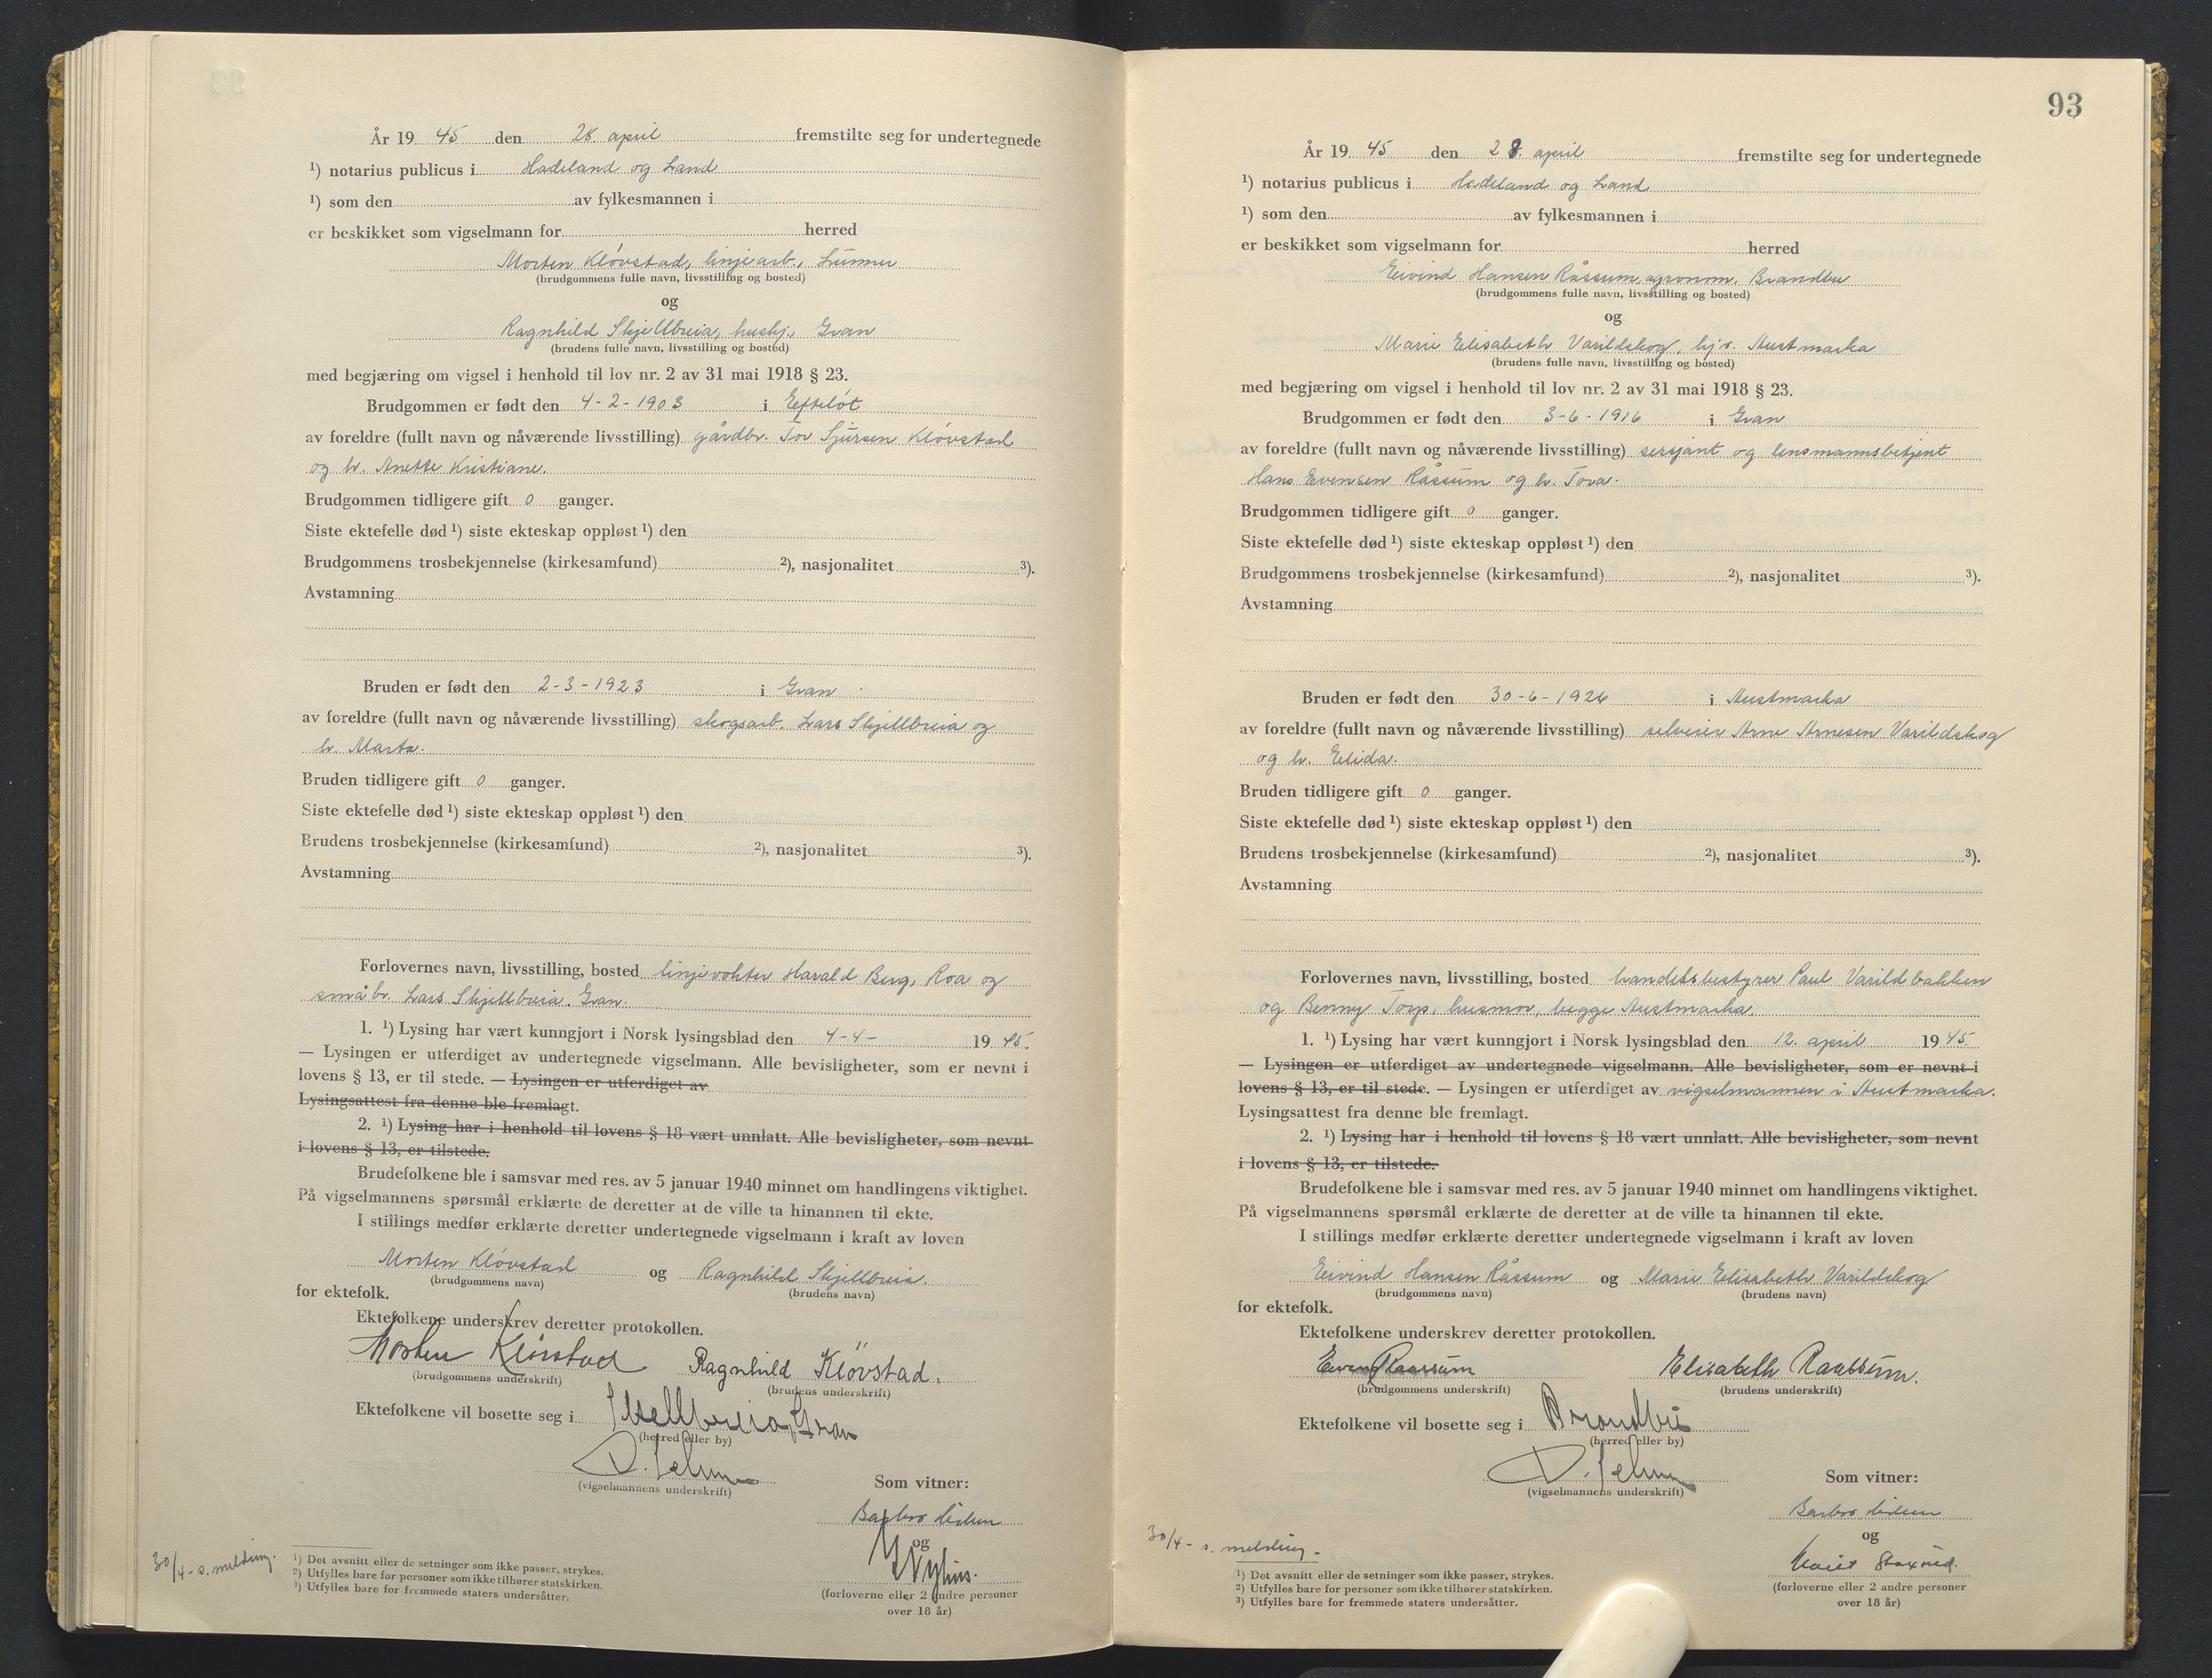 År 19 45 den 28. april fremstilte seg for undertegnede
¹) notarius publicus i Hadeland og Land
¹) som den av fylkesmannen i
er beskikket som vigselmann for herred
Morten Kløvstad, linjearb., Lunner
(brudgommens fulle navn, livsstilling og bosted)
og
Ragnhild Skjellbreia, hushj., Gran
(brudens fulle navn, livsstilling og bosted)
med begjæring om vigsel i henhold til lov nr. 2 av 31 mai 1918 § 23.
Brudgommen er født den 4-2-1903 i Efteløt
av foreldre (fullt navn og nåværende livsstilling) gårdbr. Tov Sjursen Kløvstad
og h. Anette Kristiane.
Brudgommen tidligere gift 0 ganger.
Siste ektefelle død ¹) siste ekteskap oppløst ¹) den
Brudgommens trosbekjennelse (kirkesamfund) ²), nasjonalitet ³).
Avstamning
Bruden er født den 2-3-1923 i Gran
av foreldre (fullt navn og nåværende livsstilling) skogsarb. Lars Skjellbreia og
h. Marta.
Bruden tidligere gift 0 ganger.
Siste ektefelle død ¹) siste ekteskap oppløst ¹) den
Brudens trosbekjennelse (kirkesamfund) ²), nasjonalitet ³).
Avstamning
Forlovernes navn, livsstilling, bosted linjevokter Harald Berg, Roa og
småbr. Lars Skjellbreia. Gran.
1. ¹) Lysing har vært kunngjort i Norsk lysingsblad den 4-4- 19 45.
— Lysingen er utferdiget av undertegnede vigselmann. Alle bevisligheter, som er nevnt i
lovens § 13, er til stede. — Lysingen er utferdiget av
Lysingsattest fra denne ble fremlagt.
2. ¹) Lysing har i henhold til lovens § 18 vært unnlatt. Alle bevisligheter, som nevnt
i lovens § 13, er tilstede.
Brudefolkene ble i samsvar med res. av 5 januar 1940 minnet om handlingens viktighet.
På vigselmannens spørsmål erklærte de deretter at de ville ta hinannen til ekte.
I stillings medfør erklærte deretter undertegnede vigselmann i kraft av loven
Morten Kløvstad og Ragnhild Skjellbreia.
(brudgommens navn) (brudens navn)
for ektefolk.
Ektefolkene underskrev deretter protokollen.
Morten Kløvstad Ragnhild Kløvstad.
(brudgommens underskrift) (brudens underskrift)
Ektefolkene vil bosette seg i Skjellbreia, Gran
(herred eller by)
(vigselmannens underskrift)
Som vitner:
Barbro
og
(forloverne eller 2 andre personer
over 18 år)
30/4 - s. melding.
¹) Det avsnitt eller de setninger som ikke passer, strykes.
²) Utfylles bare for personer som ikke tilhører statskirken.
³) Utfylles bare for fremmede staters undersåtter.
93
År 19 45 den 28. april fremstilte seg for undertegnede
¹) notarius publicus i Hadeland og Land
¹) som den av fylkesmannen i
er beskikket som vigselmann for herred
Eivind Hansen Råssum, agronom, Brandbu
(brudgommens fulle navn, livsstilling og bosted)
og
Marie Elisabeth Varildskog, hjv. Austmarka
(brudens fulle navn, livsstilling og bosted)
med begjæring om vigsel i henhold til lov nr. 2 av 31 mai 1918 § 23.
Brudgommen er født den 3-6-1916 i Gran
av foreldre (fullt navn og nåværende livsstilling) sersjant og lensmannsbetjent
Hans Evensen Råssum og h. Tova.
Brudgommen tidligere gift 0 ganger.
Siste ektefelle død ¹) siste ekteskap oppløst ¹) den
Brudgommens trosbekjennelse (kirkesamfund) ²), nasjonalitet ³).
Avstamning
Bruden er født den 30-6-1924 i Austmarka
av foreldre (fullt navn og nåværende livsstilling) selveier Arne Arnesen Varildskog
og h. Elida.
Bruden tidligere gift 0 ganger.
Siste ektefelle død ¹) siste ekteskap oppløst ¹) den
Brudens trosbekjennelse (kirkesamfund) ²), nasjonalitet ³).
Avstamning
Forlovernes navn, livsstilling, bosted handelsbestyrer Paul Varildbakken
og Benny Torp, husmor, begge Austmarka.
1. ¹) Lysing har vært kunngjort i Norsk lysingsblad den 12. april 19 45.
— Lysingen er utferdiget av undertegnede vigselmann. Alle bevisligheter, som er nevnt i
lovens § 13, er til stede. — Lysingen er utferdiget av vigselmannen i Austmarka.
Lysingsattest fra denne ble fremlagt.
2. ¹) Lysing har i henhold til lovens § 18 vært unnlatt. Alle bevisligheter, som nevnt
i lovens § 13, er tilstede.
Brudefolkene ble i samsvar med res. av 5 januar 1940 minnet om handlingens viktighet.
På vigselmannens spørsmål erklærte de deretter at de ville ta hinannen til ekte.
I stillings medfør erklærte deretter undertegnede vigselmann i kraft av loven
Eivind Hansen Råssum og Marie Elisabeth Varildskog
(brudgommens navn) (brudens navn)
for ektefolk.
Ektefolkene underskrev deretter protokollen.
Eivind Raassum Elisabeth Raassum.
(brudgommens underskrift) (brudens underskrift)
Ektefolkene vil bosette seg i Brandbu
(herred eller by)
(vigselmannens underskrift)
Som vitner:
Barbro
og
(forloverne eller 2 andre personer
over 18 år)
30/4 - s. melding.
¹) Det avsnitt eller de setninger som ikke passer, strykes.
²) Utfylles bare for personer som ikke tilhører statskirken.
³) Utfylles bare for fremmede staters undersåtter.